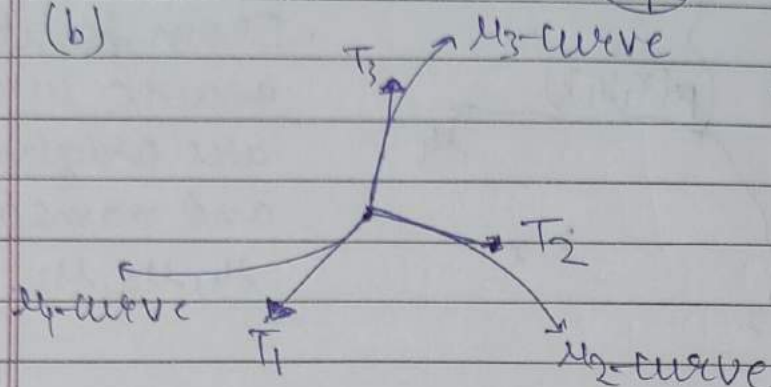 (b)
T3
u3-curve
T2
u1-curve
T1
u2-curve